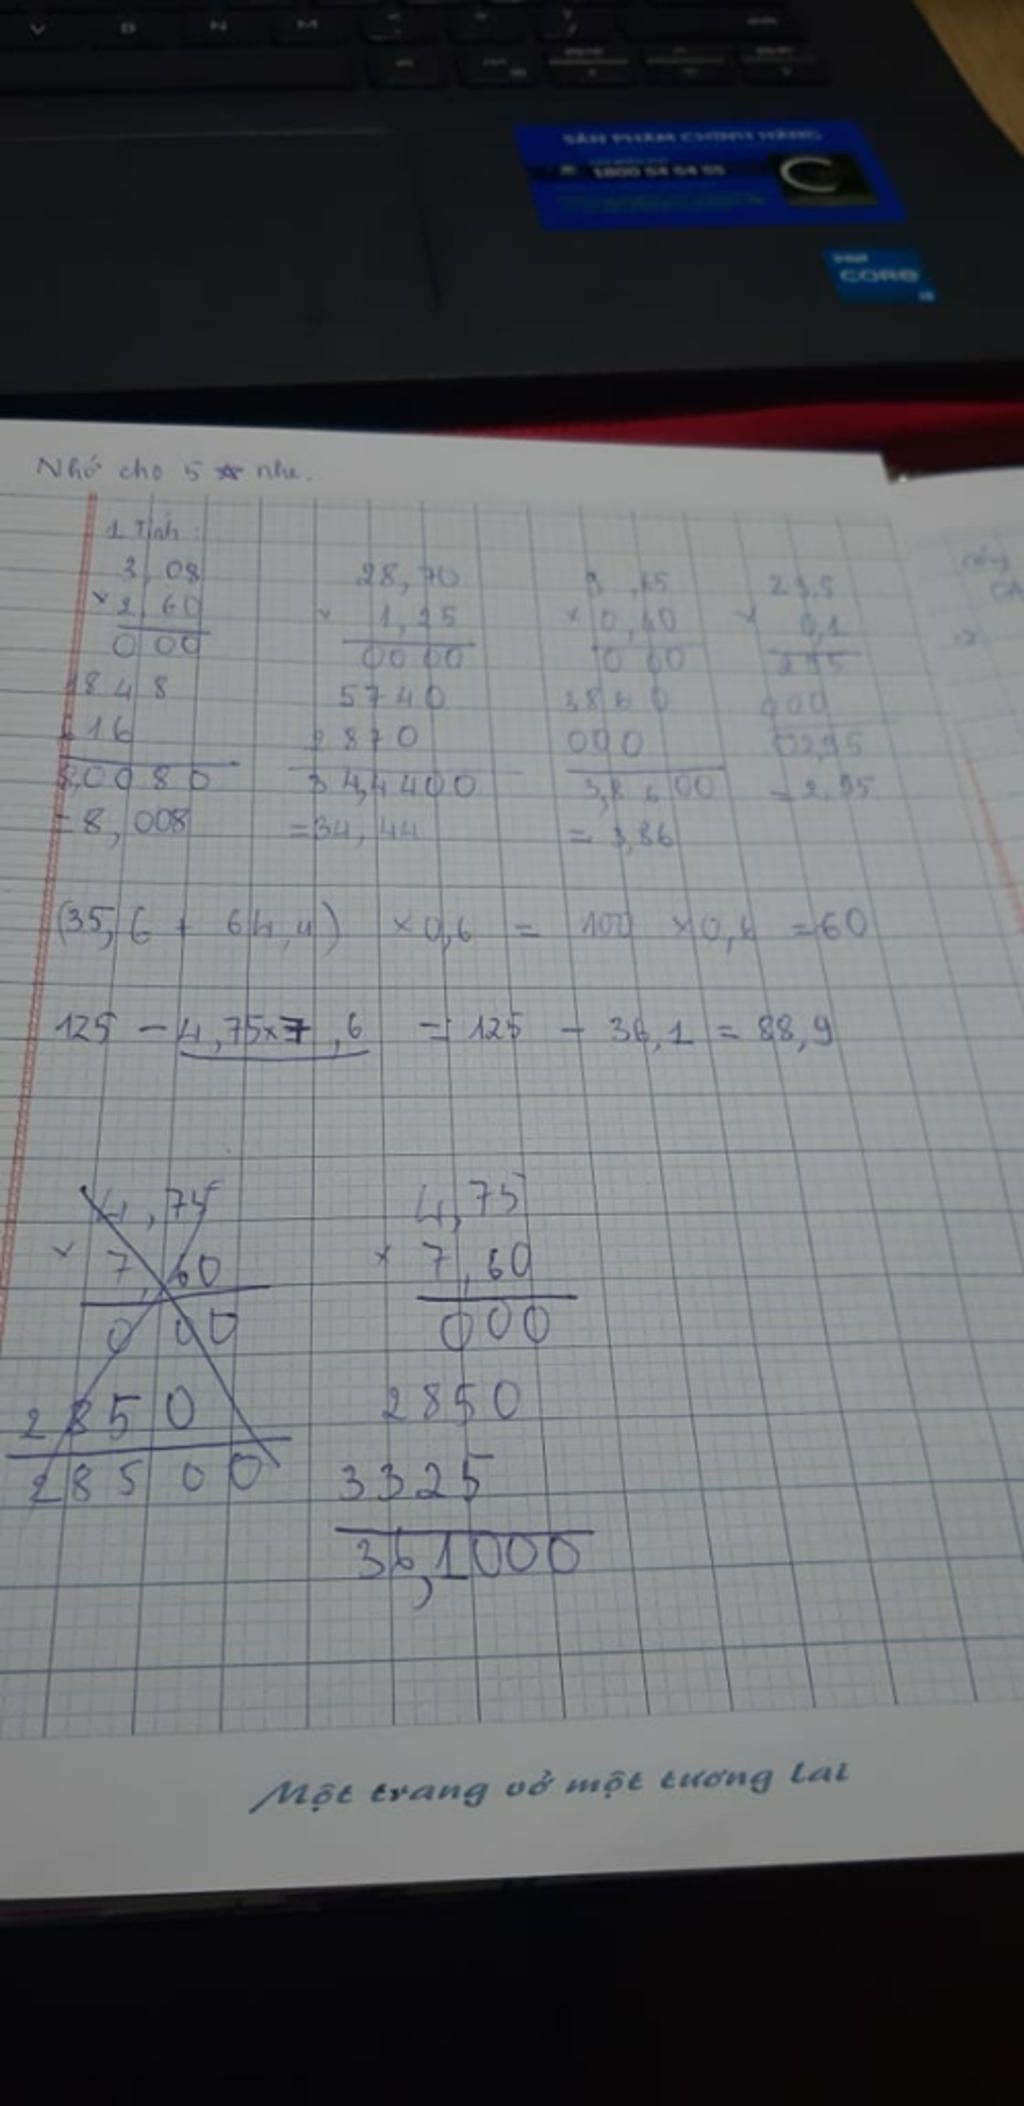 V B N M
SẢN PHẨM CHÍNH HÃNG
1800 54 54 55
intel
CORE
i5
Nhớ cho 5 ★ nhe.
1 Tính :
3,08 28,70 29,5
× 2,60 × × 0,40 × 0,1
0 00 0000 0 00 295
848 5740 3860 000
616 2870 000 0295
8,0080 34,4400 3,8600 = 2,95
= 8,008 = 34,44 = 3,86
(35,6 + 64,4) × 0,6 = 100 × 0,6 = 60
125 - 4,75 × 7,6 = 125 - 36,1 = 88,9
4,75 4,75
× 7,60 × 7,60
0 00 000
2850 2850
28500 3325
36,1000
Một trang vở một tương lai